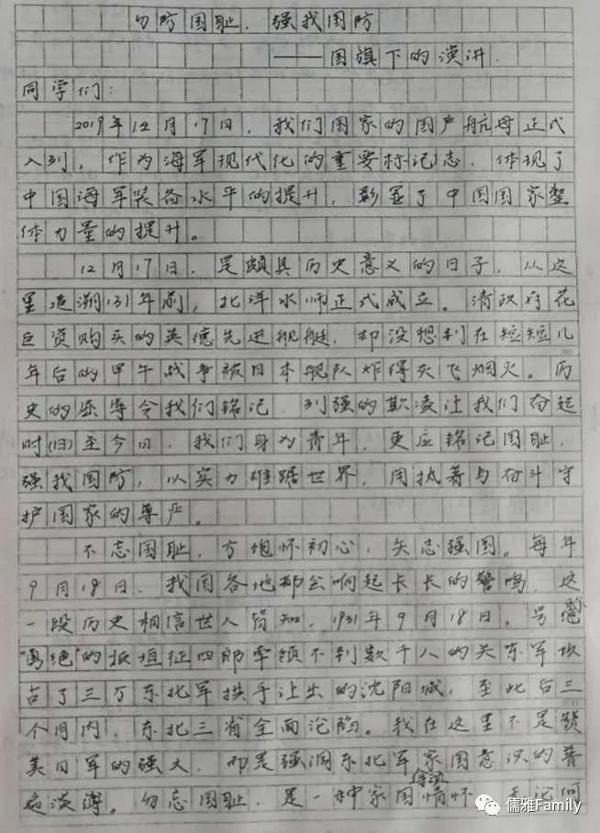 勿防国耻，强我国防
——国旗下的演讲
同学们：
2019年12月17日，我们国家的国产航母正式
入列，作为海军现代化的重要标记志，体现了
中国海军装备水平的提升，彰显了中国国家整
体力量的提升。
12月17日，是颇具历史意义的日子，从这
里追溯131年前，北洋水师正式成立。清政府花
巨资购买的英德先进舰艇，却没想到在短短几
年后的甲午战争被日本舰队炸得灰飞烟灭。历
史的屈辱令我们铭记，列强的欺凌让我们奋起
时(旧)至今日，我们身为青年，更应铭记国耻，
强我国防，以实力雄踞世界，用执着与奋斗守
护国家的尊严。
不忘国耻，方抱怀初心，矢志强国。每年
9月18日，我国各地都会响起长长的警鸣，这
一段历史相信世人皆知，1931年9月18日，号
"勇绝"的板垣征四郎率领不到数千人的关东军攻
占了三万东北军拱手让出的沈阳城，至此后三
个月内，东北三省全面沦陷。我在这里不是赞
美日军的强大，而是强调东北军家国意识的普
遍淡薄。勿忘国耻，是一种家国情怀，无论何
儒雅Family